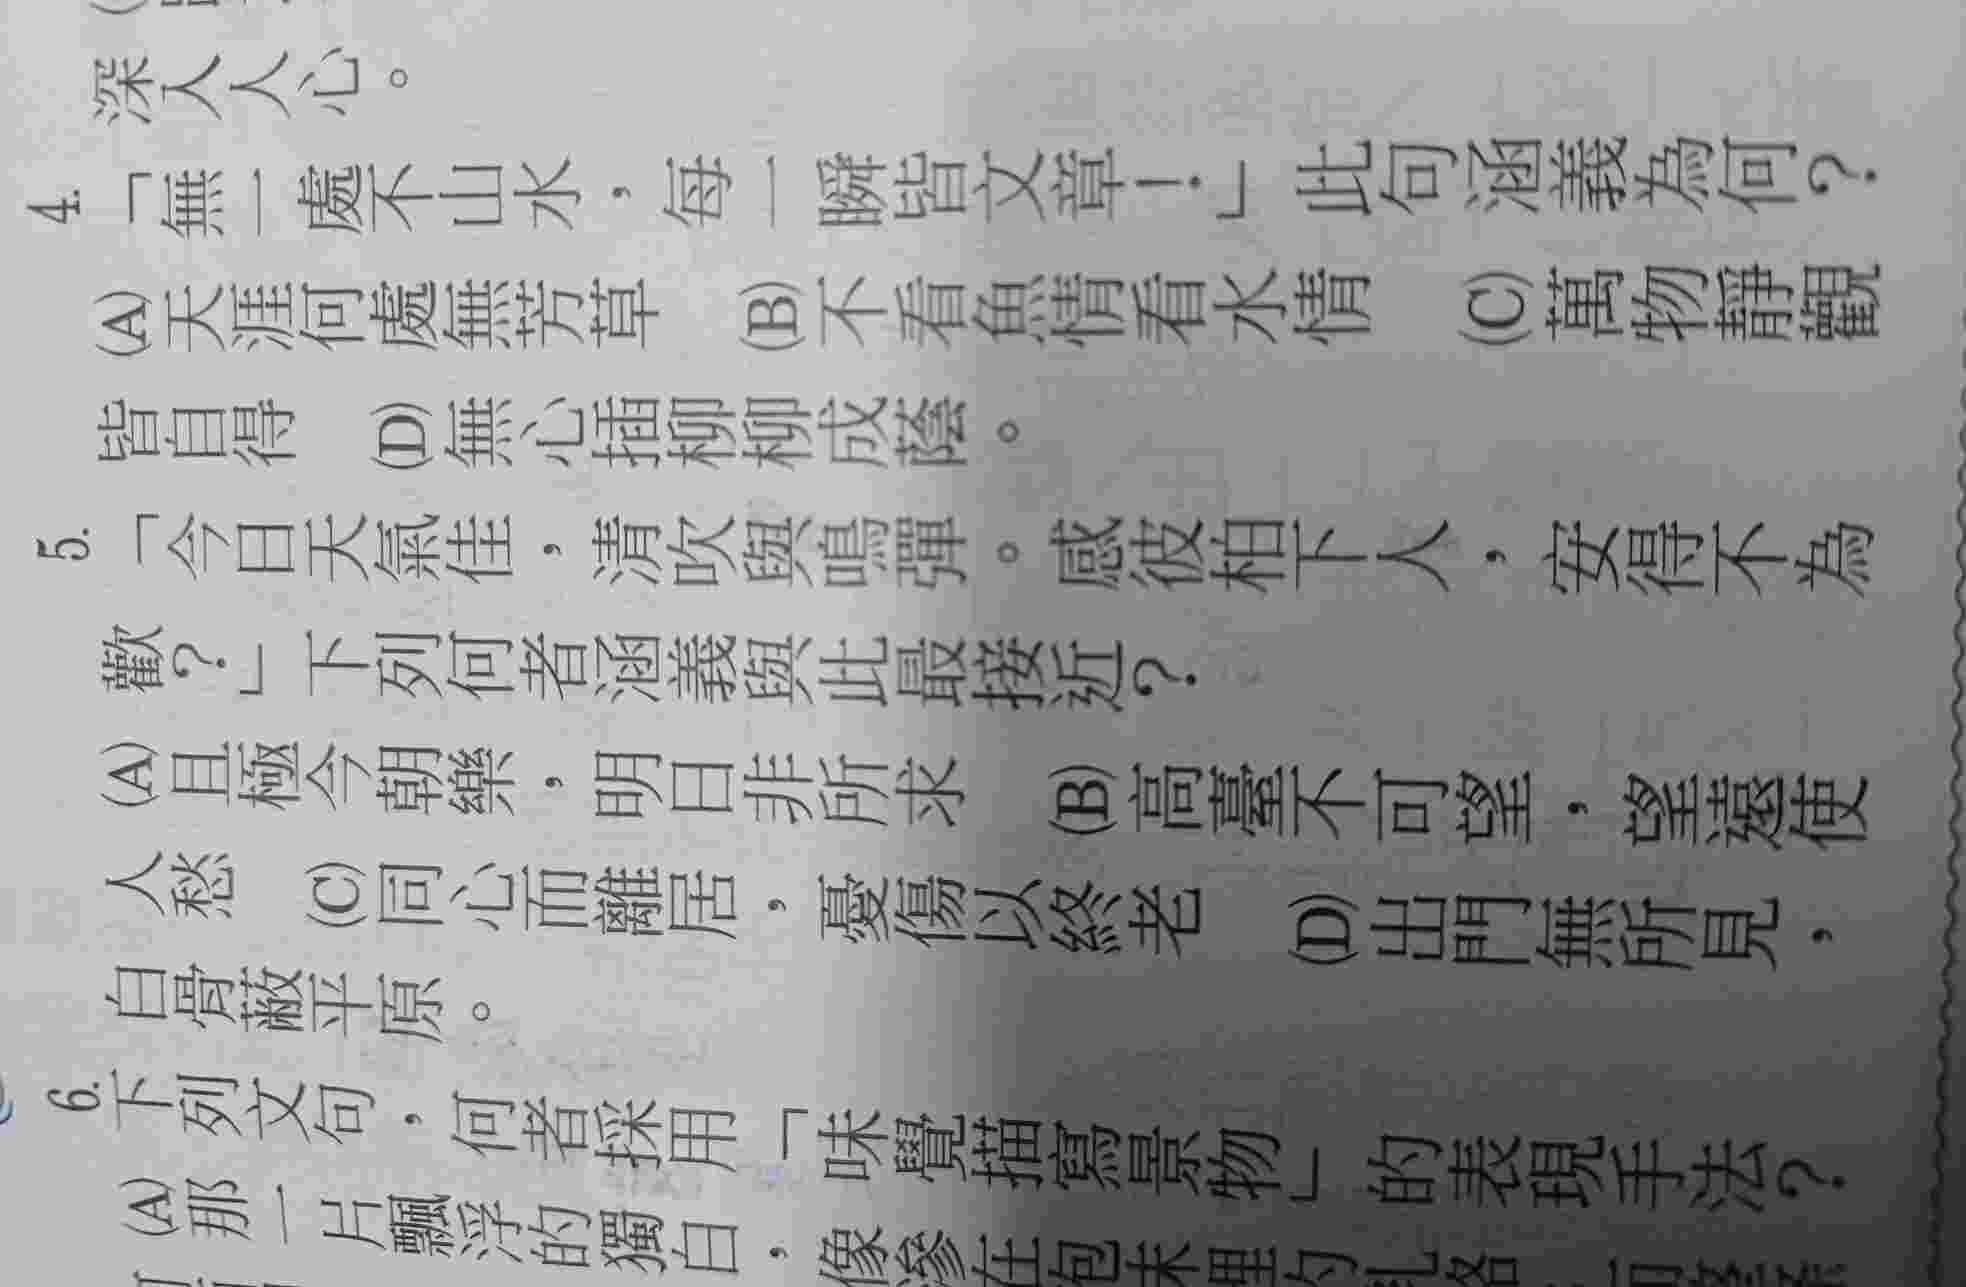 深人人心。
4.「無一處不山水，每一瞬皆文章！」此句涵義為何？
(A)天涯何處無芳草 (B)不看魚情看水情 (C)萬物靜觀
皆自得 (D)無心插柳柳成蔭。
5.「今日天氣佳，清吹與鳴彈。感彼柏下人，安得不為
歡？」下列何者涵義與此最接近？
(A)且極今朝樂，明日非所求 (B)高臺不可望，望遠使
人愁 (C)同心而離居，憂傷以終老 (D)出門無所見，
白骨蔽平原。
6.下列文句，何者採用「味覺描寫景物」的表現手法？
(A)那一片飄浮的獨白，像滲在泡沫裡的乳酪